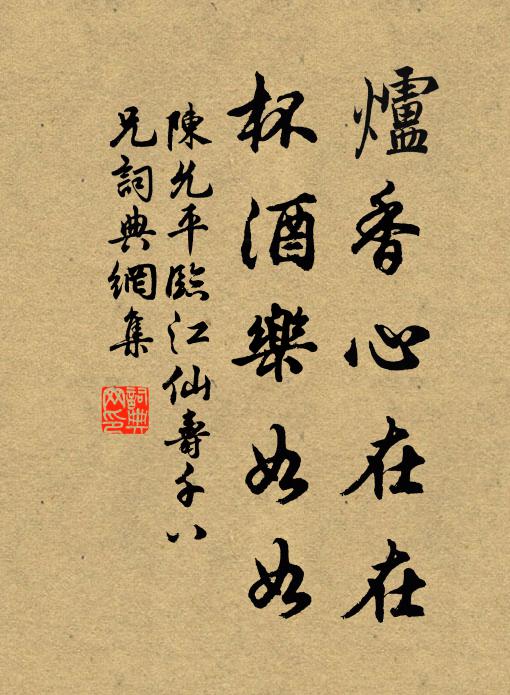 爐香心在在
杯酒樂如如
陳允平臨江仙壽千八
兄詞典網集
詞典網印